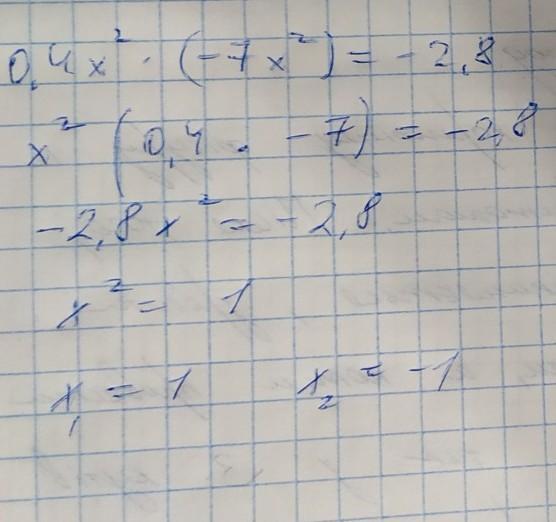 0,4x² · (-7x²) = -2,8
x² (0,4 · -7) = -2,8
-2,8x² = -2,8
x² = 1
x₁ = 1 x₂ = -1